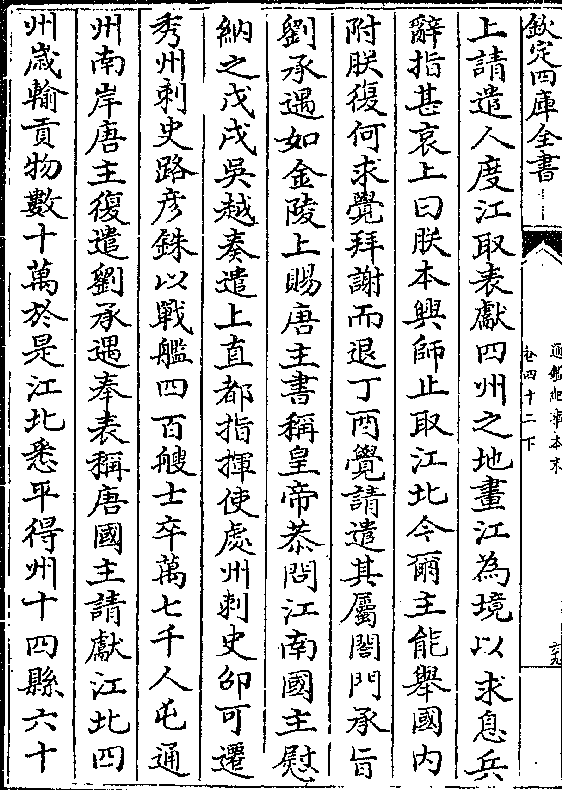 欽定四庫全書
通鑑紀事本末
卷四十二下
六九
上請遣人度江取表獻四州之地畫江為境以求息兵
辭指甚哀上曰朕本興師止取江北今爾主能舉國內
附朕復何求覺拜謝而退丁酉覺請遣其屬閤門承旨
劉承遇如金陵上賜唐主書稱皇帝恭問江南國主慰
納之戊戌吳越奏遣上直都指揮使處州刺史邵可遷
秀州刺史路彦銖以戰艦四百艘士卒萬七千人屯通
州南岸唐主復遣劉承遇奉表稱唐國主請獻江北四
州歲輸貢物數十萬於是江北悉平得州十四縣六十